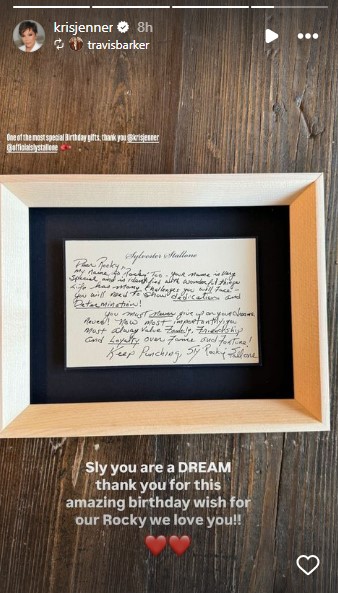 krisjenner 8h
travisbarker
One of the most special Birthday gifts, thank you @krisjenner
@officialslystallone
Sylvester Stallone
Dear Rocky,
My name is Rocky Too. Your name is very
special and is identified with wonderful things
Life has many challenges you will face
you will need to show dedication and
Determination!
You must never give up on your dreams
Never! Now most importantly you
must always value Family, Friendship
and Loyalty over Fame and Fortune!
Keep Punching, Sly Rocky Stallone
Sly you are a DREAM
thank you for this
amazing birthday wish for
our Rocky we love you!!